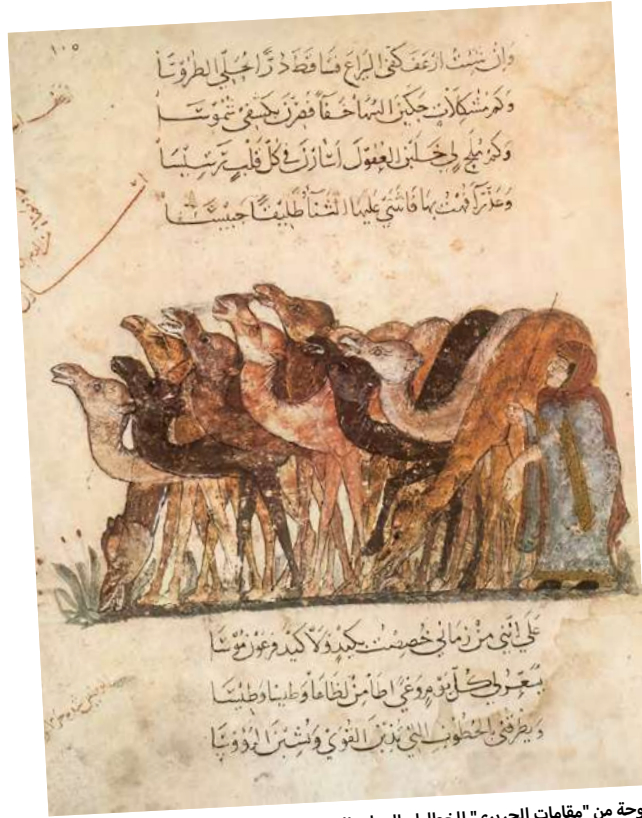 ١٠٥
وإن شئت أرعف كفي اليراع فساقط درا يحلي الطروسا
وكم مشكلات حكين السها خفاء فصرن بكشفي شموسا
وكم ملح لي خلبن العقول أسأرن في كل قلب رسيسا
وعذراء فهت بها فانثنى عليها الثنا طليقا حبيسا
على أنني من زماني خصصت بكيد ولا كيد فرعون موسى
يسعر لي كل يوم وغى أطا من لظاها وطيسا وطيسا
ويطرقني بالخطوب التي يذبن القوى ويشبن الرؤوسا
وحة من "مقامات الحريري"